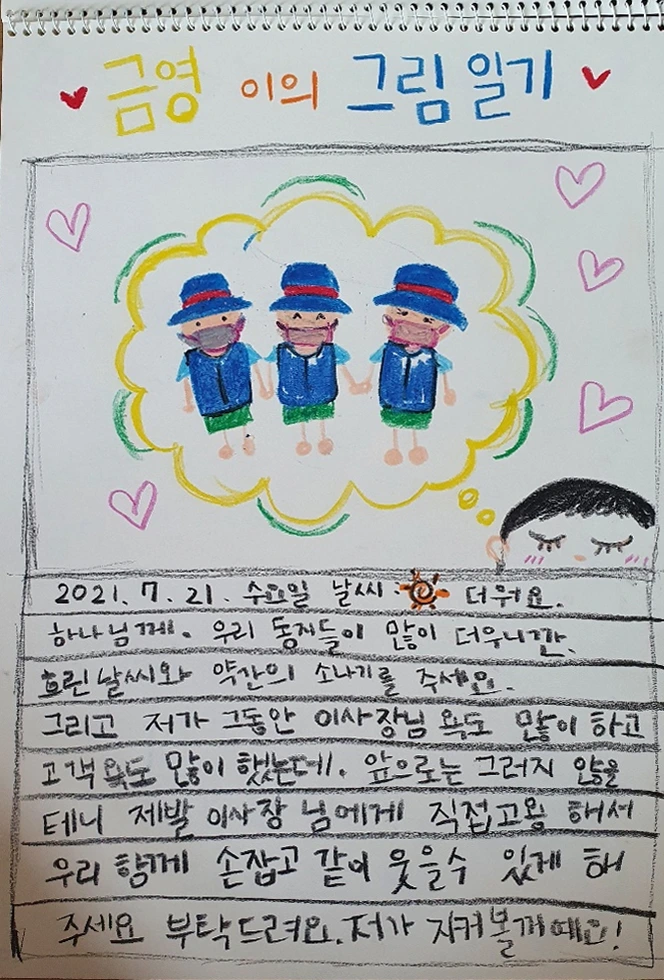 금영 이의 그림일기
2021. 7. 21. 수요일 날씨. 더워요.
하나님께. 우리 동지들이 많이 더우니깐.
흐린날씨와 약간의 소나기를 주세요.
그리고 저가 그동안 이사장님 욕도 많이 하고
고객 욕도 많이 했는데. 앞으로는 그러지 않을
테니 제발 이사장 님에게 직접고용 해서
우리 함께 손잡고 같이 웃을수 있게 해
주세요 부탁드려요. 저가 지켜볼꺼예요!